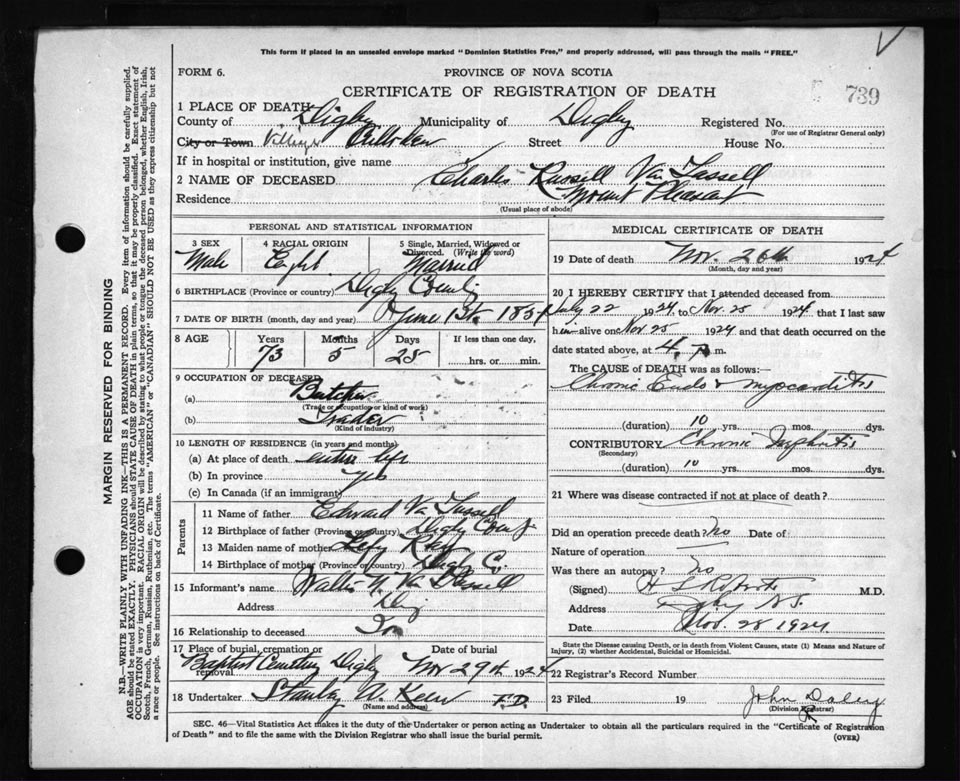 This form if placed in an unsealed envelope marked "Dominion Statistics Free," and properly addressed, will pass through the mails "FREE."
FORM 6.
PROVINCE OF NOVA SCOTIA
CERTIFICATE OF REGISTRATION OF DEATH
739
1 PLACE OF DEATH
County of Digby Municipality of Digby Registered No.
(For use of Registrar General only)
City or Town Village Street House No.
If in hospital or institution, give name
2 NAME OF DECEASED Charles Russell Van Tassell
Residence Mount Pleasant
(Usual place of abode)
PERSONAL AND STATISTICAL INFORMATION
3 SEX 4 RACIAL ORIGIN 5 Single, Married, Widowed or Divorced. (Write the word)
Male Married
6 BIRTHPLACE (Province or country) Digby County
7 DATE OF BIRTH (month, day and year) June 1st 1851
8 AGE Years Months Days If less than one day,
73 5 25 hrs. or min.
9 OCCUPATION OF DECEASED
(a) Butcher
(Trade or occupation or kind of work)
(b) Trader
(Kind of industry)
10 LENGTH OF RESIDENCE (in years and months)
(a) At place of death entire life
(b) In province yes
(c) In Canada (if an immigrant)
Parents
11 Name of father Edward Van Tassell
12 Birthplace of father (Province or country) Digby County
13 Maiden name of mother
14 Birthplace of mother (Province or country) Digby Co.
15 Informant's name Van Tassell
Address Digby
16 Relationship to deceased Son
17 Place of burial, cremation or removal Date of burial
Baptist Cemetery Digby Nov 29th 1924
18 Undertaker Stanley A. F.D.
(Name and address)
MEDICAL CERTIFICATE OF DEATH
19 Date of death Nov. 26th 1924
(Month, day and year)
20 I HEREBY CERTIFY that I attended deceased from
July 22 1924, to Nov. 25 1924, that I last saw
him alive on Nov 25 1924 and that death occurred on
date stated above, at 4 m.
The CAUSE of DEATH was as follows:
Chronic Endo & myocarditis
(duration) 10 yrs. mos. dys.
CONTRIBUTORY Chronic Nephritis
(Secondary)
(duration) 10 yrs. mos. dys.
21 Where was disease contracted if not at place of death?
Did an operation precede death? No Date of
Nature of operation
Was there an autopsy? No
(Signed) M.D.
Address Digby N.S.
Date Nov. 28 1924
State the Disease causing Death, or in death from Violent Causes, state (1) Means and Nature of Injury, (2) whether Accidental, Suicidal or Homicidal.
22 Registrar's Record Number
23 Filed 19 John Daley
(Division Registrar)
SEC. 46—Vital Statistics Act makes it the duty of the Undertaker or person acting as Undertaker to obtain all the particulars required in the "Certificate of Registration
of Death" and to file the same with the Division Registrar who shall issue the burial permit.
(OVER)
MARGIN RESERVED FOR BINDING
N.B.—WRITE PLAINLY WITH UNFADING INK—THIS IS A PERMANENT RECORD. Every item of information should be carefully supplied.
AGE should be stated EXACTLY. PHYSICIANS should STATE CAUSE OF DEATH in plain terms, so that it may be properly classified. Exact statement of
OCCUPATION is very important. RACIAL ORIGIN will be described by stating to what people or tongue the deceased person belonged, whether English, Irish,
Scotch, French, German, Russian, Ruthenian, etc. The terms "AMERICAN" or "CANADIAN" SHOULD NOT BE USED as they express citizenship but not
a race or people. See instructions on back of Certificate.